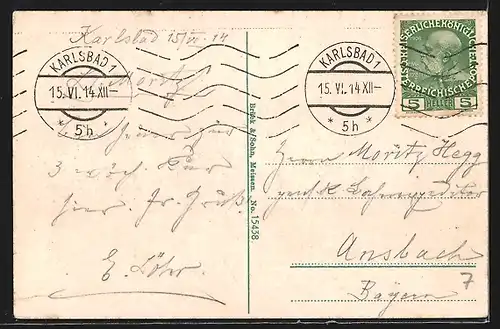 Karlsbad 15/VI. 14
KARLSBAD 1
15. VI. 14 XII-
* 5h *
L. Moritz
hier zur
3 wöch. Kur
hier. Fr. Gruß
E. Löhr
Brück & Sohn, Meissen. No. 15438
KARLSBAD 1
15. VI. 14 XII-
* 5h *
KAISERLICHEKÖNIGLICHE
ÖSTERREICHISCHE POST
5 HELLER 5
Herrn Moritz Hegg
Ansbach
Bayern
7